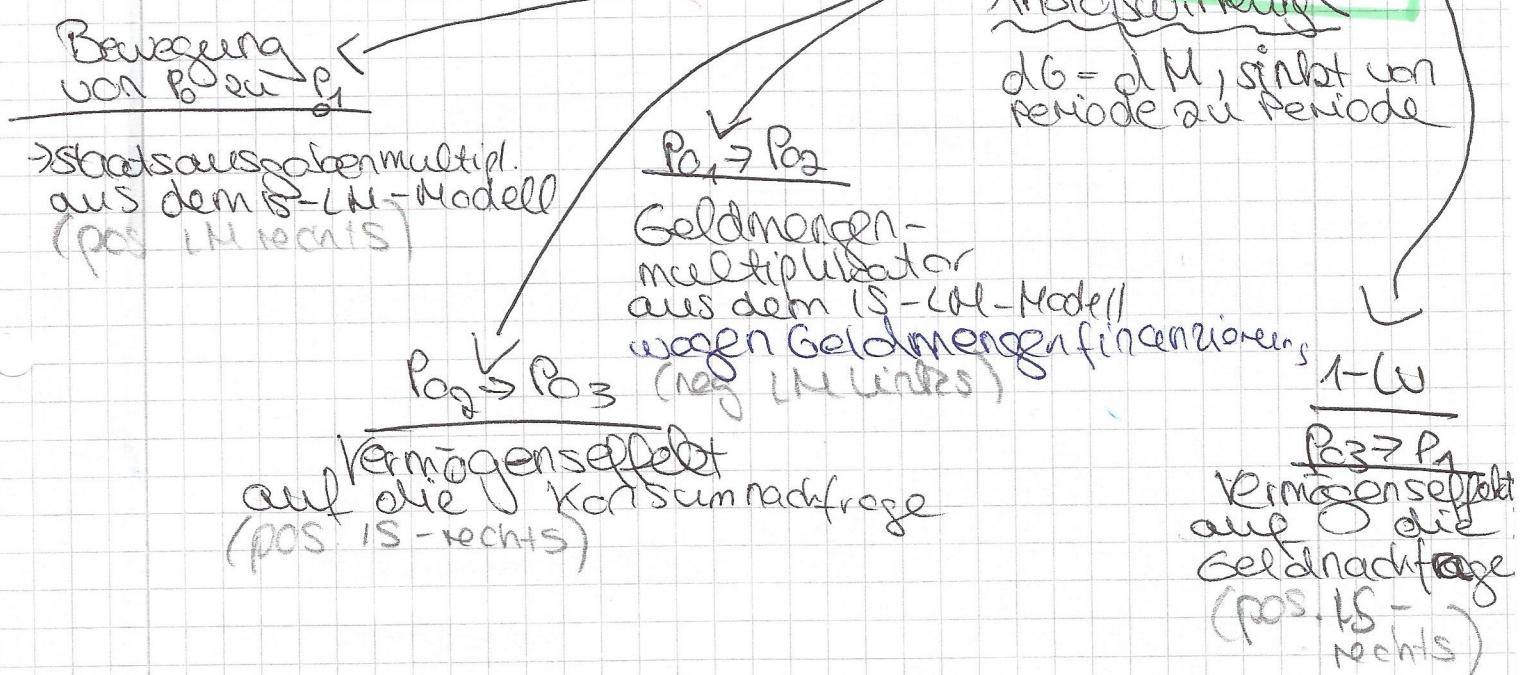 Bewegung
von P0 zu P1
→ staatsausgabenmultipl.
aus dem IS-LM-Modell
(pos LM rechts)
dG = dM, sinkt von
Periode zu Periode
P01 → P02
Geldmengen-
multiplikator
aus dem IS-LM-Modell
wegen Geldmengenfinanzierung
(neg LM links)
P02 → P03
Vermögenseffekt
auf die Konsumnachfrage
(pos IS-rechts)
1-W
P03 → P1
Vermögenseffekt
auf die
Geldnachfrage
(pos. IS-
rechts)